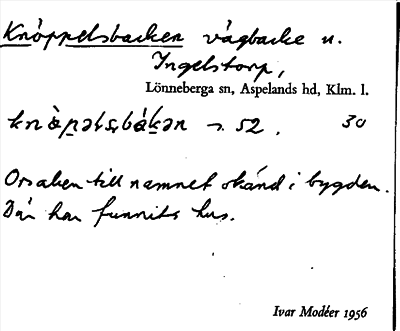 Knöppelsbacken vägbacke u.
Ingelstorp,
Lönneberga sn, Aspelands hd, Klm. l.
knö̀pəlsbákən s. 52. 30
Orsaken till namnet okänd i bygden.
Där har funnits hus.
Ivar Modéer 1956